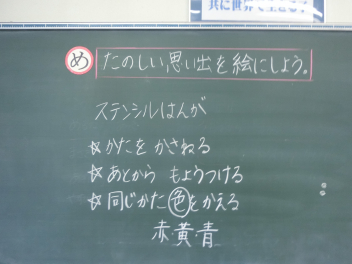 共に世界で生きる
め たのしい思い出を絵にしよう。
ステンシルはんが
☆かたを かさねる
☆あとから もようつける
☆同じかた色をかえる
赤・黄・青